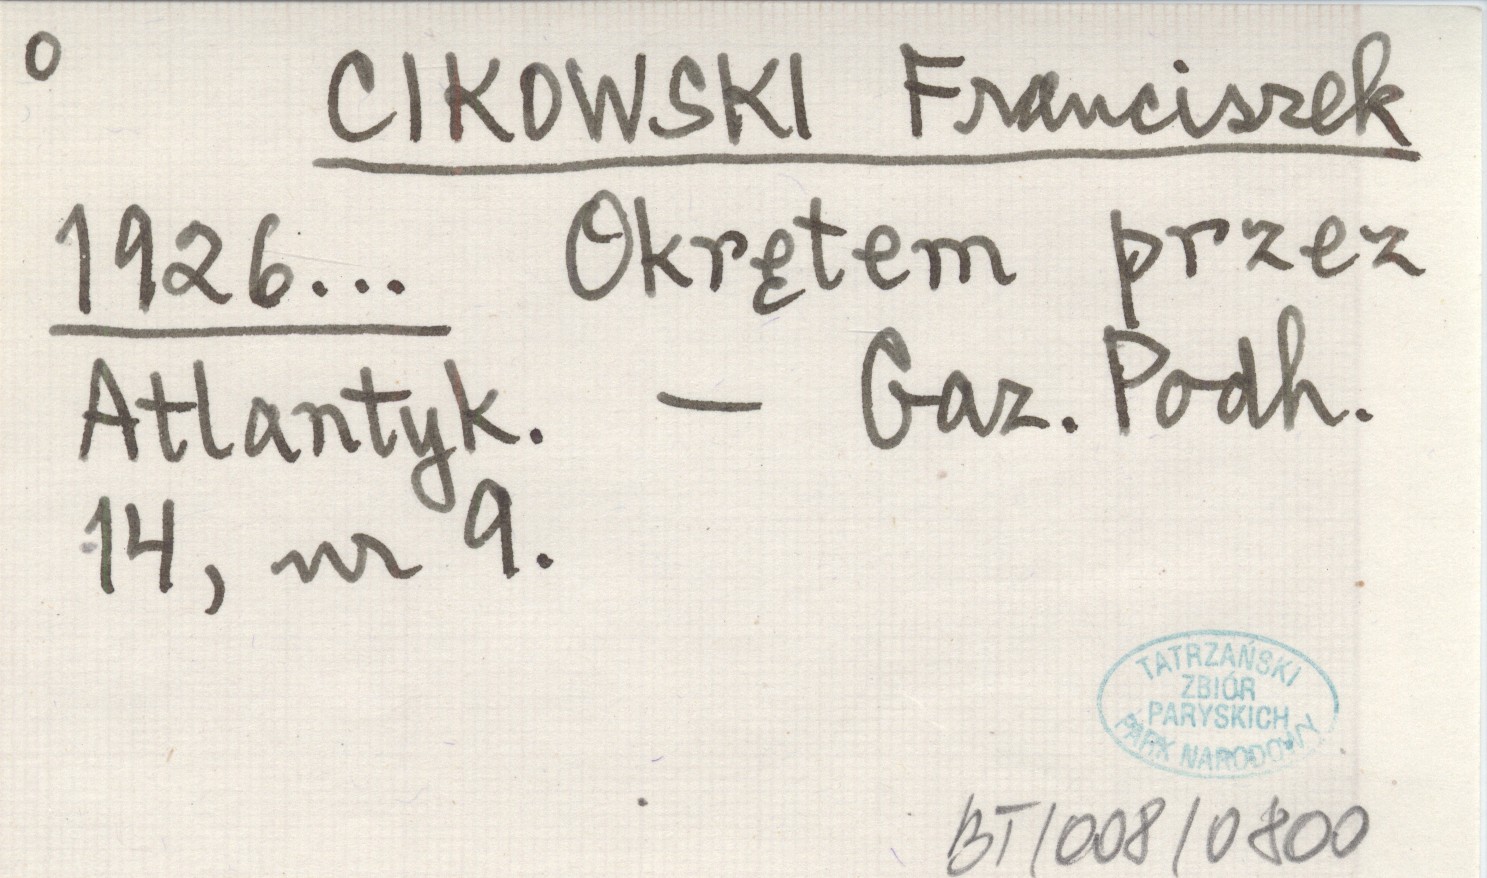 o
CIKOWSKI Franciszek
1926... Okrętem przez
Atlantyk. — Gaz. Podh.
14, nr 9.
TATRZAŃSKI
ZBIÓR
PARYSKICH
PARK NARODOWY
BT/008/0800